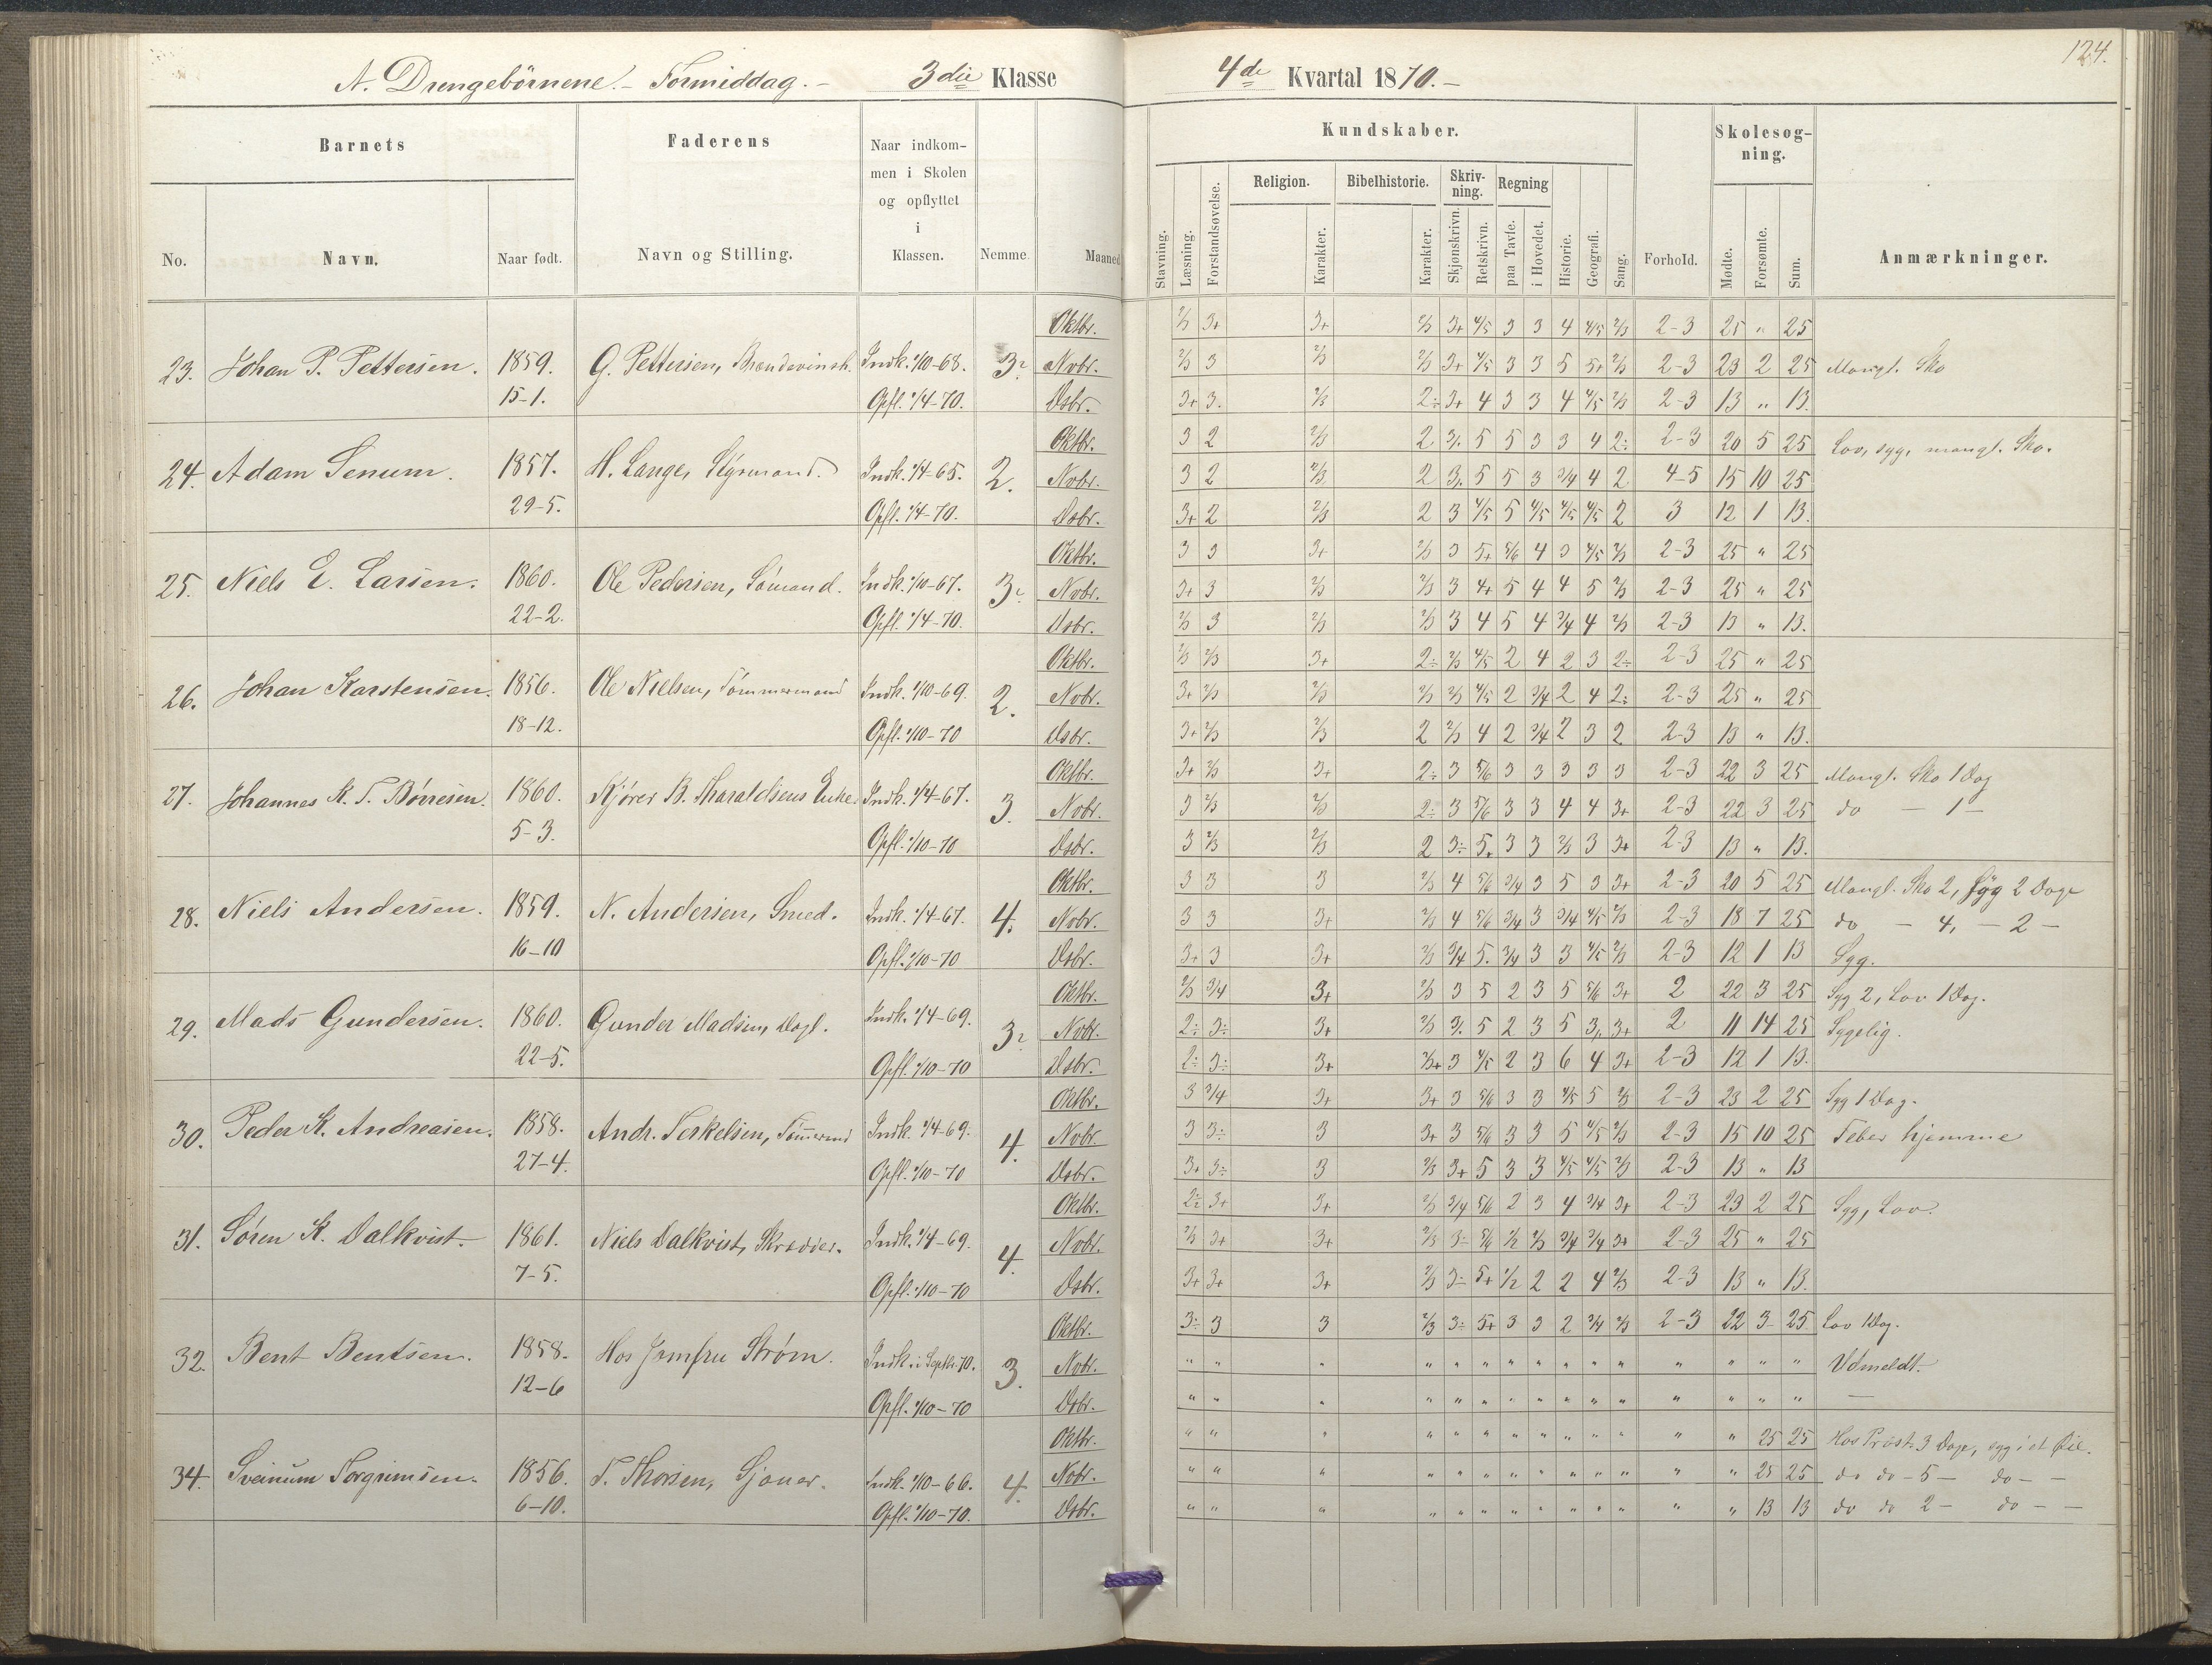 124.
A. Drengebörnene. – Formiddag. – 3die Klasse 4de Kvartal 1870. –
Barnets Faderens Naar indkommen i Skolen og opflyttet i Klassen. Nemme. Maaned Kundskaber. Forhold. Skolesøgning. Anmærkninger.
No. Navn. Naar født. Navn og Stilling.
Stavning. Læsning. Forstandsøvelse. Religion. Karakter. Bibelhistorie. Karakter. Skrivning. Skjønskrivn. Retskrivn. Regning paa Tavle. i Hovedet. Historie. Geografi. Sang. Mødte. Forsømte. Sum.
Oktbr. 2/3 3+ 3+ 2/3 3+ 4/5 3 3 4 4/5 2/3 2-3 25 " 25
23. Johan P. Pettersen. 1859. G. Pettersen, Indk. 1/10-68. 3 Nobr. 2/3 3 2/3 2/3 3+ 4/5 3 3 5 5+ 2/3 2-3 23 2 25 Mangl. Sko
15-1. Opfl. 1/4-70. Dsbr. 3+ 3. 2/3 2÷ 3+ 4 3 3 4 4/5 2/3 2-3 13 " 13.
Oktbr. 3 2 2/3 2 3. 5 5 3 3 4 2÷ 2-3 20 5 25 Lov, syg, mangl. Sko.
24. Adam Senum. 1857. H. Lange, Styrmand. Indk. 1/4-65. 2. Nobr. 3 2 2/3. 2 3. 5 5 3 3/4 4 2 4-5 15 10 25
29-5. Opfl. 1/4-70. Dsbr. 3+ 2 2/3 2 3 4/5 5 4/5 4/5 4/5 2 3 12 1 13.
Oktbr. 3 3 3+ 2/3 3 5+ 5/6 4 3 4/5 2/3 2-3 25 " 25
25. Niels E. Larsen. 1860. Ole Pedersen, Sömand. Indk. 1/10-67. 3 Nobr. 3+ 3 2/3 2/3 3 4+ 5 4 4 5 2/3 2-3 25 " 25
22-2. Opfl. 1/4-70. Dsbr. 2/3 3 2/3 2/3 3 4 5 4 3/4 4 2/3 2-3 13 " 13.
Oktbr. 2/3 2/3 3+ 2÷ 2/3 4/5 2 4 2 3 2÷ 2-3 25 " 25
26. Johan Karstensen. 1856. Ole Nielsen, Tømmermand Indk. 1/10-69. 2. Nobr. 3+ 2/3 2/3 2/3 2/3 4/5 2 3/4 2 4 2÷ 2-3 25 " 25
18-12. Opfl. 1/10-70 Dsbr. 3+ 2/3 2/3 2 2/3 4 2 3/4 2 3 2 2-3 13 " 13.
Oktbr. 3+ 2/3 3+ 2÷ 3 5/6 3 3 3 3 3 2-3 22 3 25 Mangl. Sko 1 Dag
27. Johannes K. T. Børresen. 1860. B. Tharaldsens Enke Indk. 1/4-67. 3. Nobr. 3 2/3 2/3 2÷ 3 5/6 3 3 4 4 3+ 2-3 22 3 25 do – 1 –
5-3. Opfl. 1/10-70 Dsbr. 3 2/3 2/3 2 3÷ 5+ 3 3 2/3 3 3+ 2-3 13 " 13.
Oktbr. 3 3 3 2/3 4 5/6 3/4 3 5 3 3+ 2-3 20 5 25 Mangl. Sko 2, Syg 2 Dage
28. Niels Andersen. 1859. N. Andersen, Smed. Indk. 1/4-67. 4. Nobr. 3 3 3+ 2/3 4 5/6 3/4 3 3/4 4/5 2/3 2-3 18 7 25 do – 4, – 2 –
16-10 Opfl. 1/10-70 Dsbr. 3+ 3 3+ 2/3 3/4 5. 3/4 3 3 4/5 2/3 2-3 12 1 13 Syg.
Oktbr. 2/3 3/4 3+ 2/3 3 5 2 3 5 5/6 3+ 2 22 3 25 Syg 2, Lov 1 Dag.
29. Mads Gundersen. 1860. Gunder Madsen, Dagl. Indk. 1/4-69. 3 Nobr. 2÷ 3÷ 3+ 2/3 3. 5 2 3 5 3. 3+ 2 11 14 25 Sygelig.
22-5. Opfl. 1/10-70 Dsbr. 2÷ 3÷ 3+ 3+ 3 4/5 2 3 6 4 3+ 2-3 12 1 13.
Oktbr. 3 3/4 3+ 3+ 3 5/6 3 3 4/5 5 2/3 2-3 23 2 25 Syg 1 Dag.
30. Peder K. Andreasen. 1858. Andr. Terkelsen, Indk. 1/4-69. 4. Nobr. 3 3÷ 3 3+ 3 5/6 3 3 5 4/5 2/3 2-3 15 10 25 Feber hjemme
27-4. Opfl. 1/10-70 Dsbr. 3+ 3÷ 3 2/3 3+ 5 3 3 4/5 4/5 2/3 2-3 13 " 13
Oktbr. 2÷ 3+ 3+ 2/3 3/4 5/6 2 3 4 3/4 3+ 2-3 23 2 25 Syg, Lov.
31. Søren K. Dalkvist. 1861. Niels Dalkvist, Skrædder. Indk. 1/4-69. 4. Nobr. 2/3 3+ 3+ 2/3 3÷ 5/6 1/2 2/3 3/4 3/4 3+ 2-3 25 " 25
7-5. Opfl. 1/10-70 Dsbr. 3+ 3+ 3+ 2/3 3÷ 5+ 1/2 2 2 4 2/3 2-3 13 " 13.
Oktbr. 3÷ 3 3 2/3 3÷ 5+ 3 3 2 3/4 2/3 2-3 22 3 25 Lov 1 Dag.
32. Bent Bentsen. 1858. Hos Jomfru Strøm. Indk. i Septbr. 70. 3. Nobr. " " " " " " " " " " " " " " " Udmeldt.
12-6 Opfl. 1/10-70 Dsbr. " " " " " " " " " " " " " " " —
Oktbr. " " " " " " " " " " " " " 25 25 Hos Præst 3 Dage, syg i et Øie.
34. Sveinum Torgrimsen. 1856. T. Thorsen, Indk. 1/10-66. 4. Nobr. " " " " " " " " " " " " " 25 25 do do – 5 – do – –
6-10. Opfl. 1/10-70. Dsbr. " " " " " " " " " " " " " 13 13 do do 2 – do – –